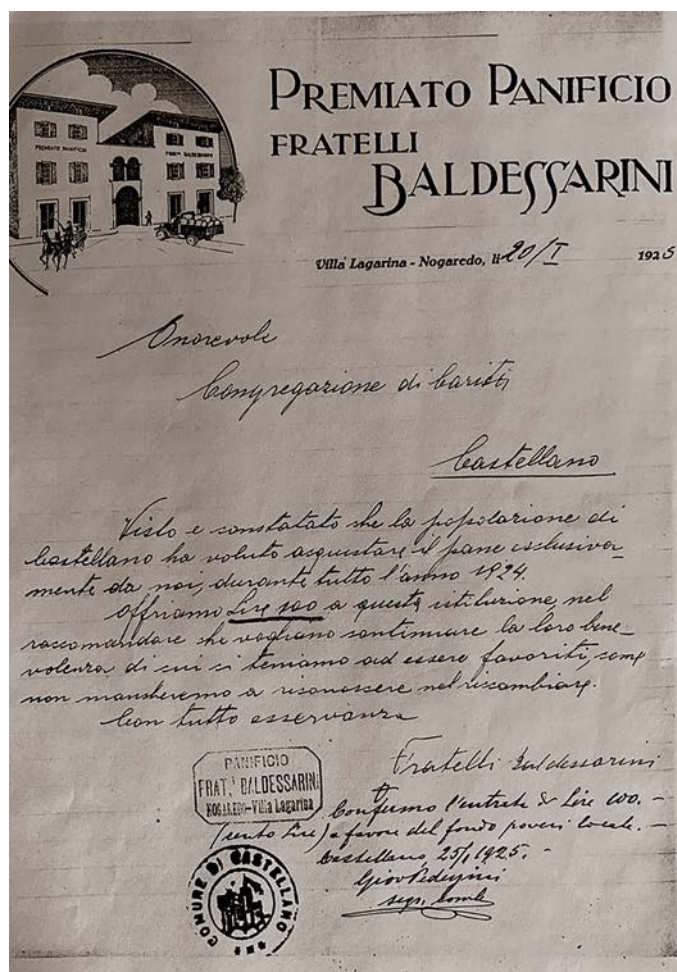 PREMIATO PANIFICIO
FRATELLI
BALDESSARINI
PREMIATO PANIFICIO
FRAT.LLI BALDESSARINI
Villa Lagarina - Nogaredo, li 20/I 1925
Onorevole
Congregazione di Carità
Castellano
Visto e constatato che la popolazione di
Castellano ha voluto acquistare il pane esclusiva-
mente da noi, durante tutto l'anno 1924.
Offriamo Lire 100 a questa istituzione, nel
raccomandare che vogliano continuare la loro bene-
volenza di cui ci teniamo ad essere favoriti, come
non mancheremo a riconoscere nel ricambiare.
Con tutto osservanza
Fratelli Baldessarini
PANIFICIO
FRAT.I BALDESSARINI
NOGAREDO-Villa Lagarina
Confermo l'entrata di Lire 100.-
(cento Lire) a favore del fondo poveri locale.-
Castellano, 25/1 1925.-
Giov Pederzini
segr. comle
COMUNE DI CASTELLANO